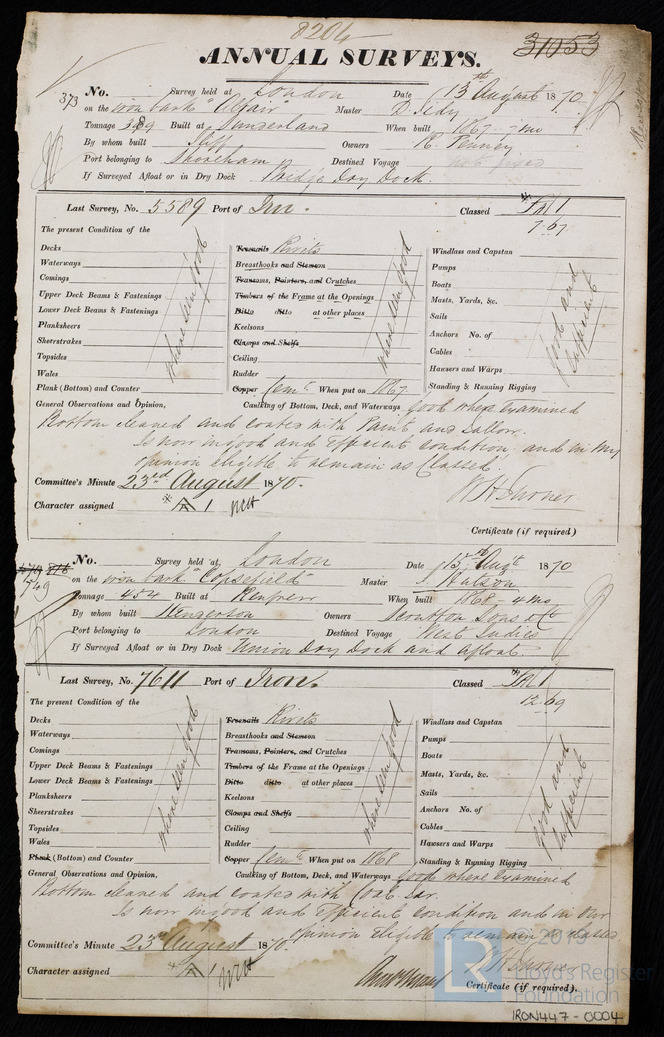 8204
31053
ANNUAL SURVEYS.
373 No. Survey held at London Date 13th August 1870
on the iron bark "Altair" Master D. Sedy
Tonnage 389 Built at Sunderland When built 1867 - 7 mo
By whom built Iliff Owners R. Penney
Port belonging to Shoreham Destined Voyage not fixed
If Surveyed Afloat or in Dry Dock Bridge Dry Dock.
Last Survey, No. 5589 Port of Irn. Classed A 1
7.67
The present Condition of the
Decks
Waterways
Comings
Upper Deck Beams & Fastenings
Lower Deck Beams & Fastenings
Planksheers
Sheerstrakes
Topsides
Wales
Plank (Bottom) and Counter
where seen good
Treenails Rivets
Breasthooks and Stemson
Transoms, Pointers, and Crutches
Timbers of the Frame at the Openings
Ditto ditto at other places
Keelsons
Clamps and Shelfs
Ceiling
Rudder
Copper Cemt. When put on 1867
where seen good
Windlass and Capstan
Pumps
Boats
Masts, Yards, &c.
Sails
Anchors No. of
Cables
Hawsers and Warps
Standing & Running Rigging
good and sufficient
General Observations and Opinion, Caulking of Bottom, Deck, and Waterways good where examined
Bottom cleaned and coated with Paint and Tallow.
Is now in good and efficient condition and in my
opinion eligible to remain as Classed.
Committee's Minute 23rd August 1870.
Character assigned A 1
W H Turner
Certificate (if required)
549 No. Survey held at London Date 13th Augt 1870
on the iron bark "Copsefield" Master J. Hutson
Tonnage 454 Built at Renfrew When built 1868 - 4 mo
By whom built Henderson Owners Scrutton Sons & Co
Port belonging to London Destined Voyage West Indies
If Surveyed Afloat or in Dry Dock Union Dry Dock and afloat.
Last Survey, No. 7611 Port of Iron. Classed A 1
12.69
The present Condition of the
Decks
Waterways
Comings
Upper Deck Beams & Fastenings
Lower Deck Beams & Fastenings
Planksheers
Sheerstrakes
Topsides
Wales
Plank (Bottom) and Counter
where seen good
Treenails Rivets
Breasthooks and Stemson
Transoms, Pointers, and Crutches
Timbers of the Frame at the Openings
Ditto ditto at other places
Keelsons
Clamps and Shelfs
Ceiling
Rudder
Copper Cemt. When put on 1868
where seen good
Windlass and Capstan
Pumps
Boats
Masts, Yards, &c.
Sails
Anchors No. of
Cables
Hawsers and Warps
Standing & Running Rigging
good and sufficient
General Observations and Opinion, Caulking of Bottom, Deck, and Waterways good where examined
Bottom cleaned and coated with Coal Tar.
Is now in good and efficient condition and in our
opinion eligible to remain as classed
Committee's Minute 23rd August 1870.
Character assigned A 1
W H Turner
Certificate (if required).
© 2019
Lloyd's Register
Foundation
IRON447-0004